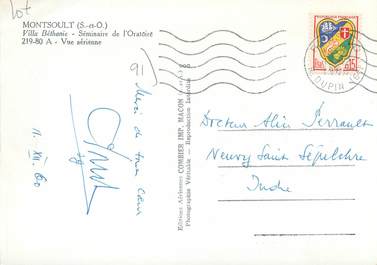 lot
MONTSOULT (S.-et-O.)
Villa Béthanie - Séminaire de l'Oratoire
219-80 A - Vue aérienne
91)
Merci de tout cœur
11. XII. 60
Editions Aériennes COMBIER IMP. MACON
Photographie Véritable - Reproduction Interdite
0,15
Docteur Alin Perrault
Neuvy Saint Sépulchre
Indre